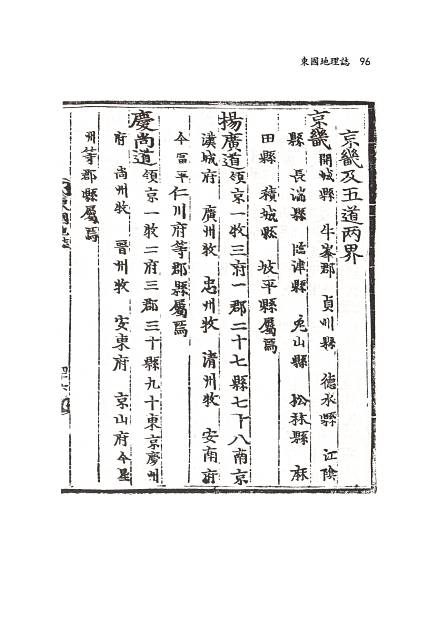 東國地理誌 96
京畿及五道兩界
京畿 開城縣 牛峯郡 貞州縣 德水縣 江陰
縣 長湍縣 臨津縣 兎山縣 松林縣 麻
田縣 積城縣 坡平縣屬焉
揚廣道 領京一牧三府一郡二十七縣七十八南京
漢城府 廣州牧 忠州牧 淸州牧 安南府
今富平 仁川府等郡縣屬焉
慶尚道 領京一牧二府三郡三十縣九十東京慶州
府 尚州牧 晋州牧 安東府 京山府今星
州等郡縣屬焉